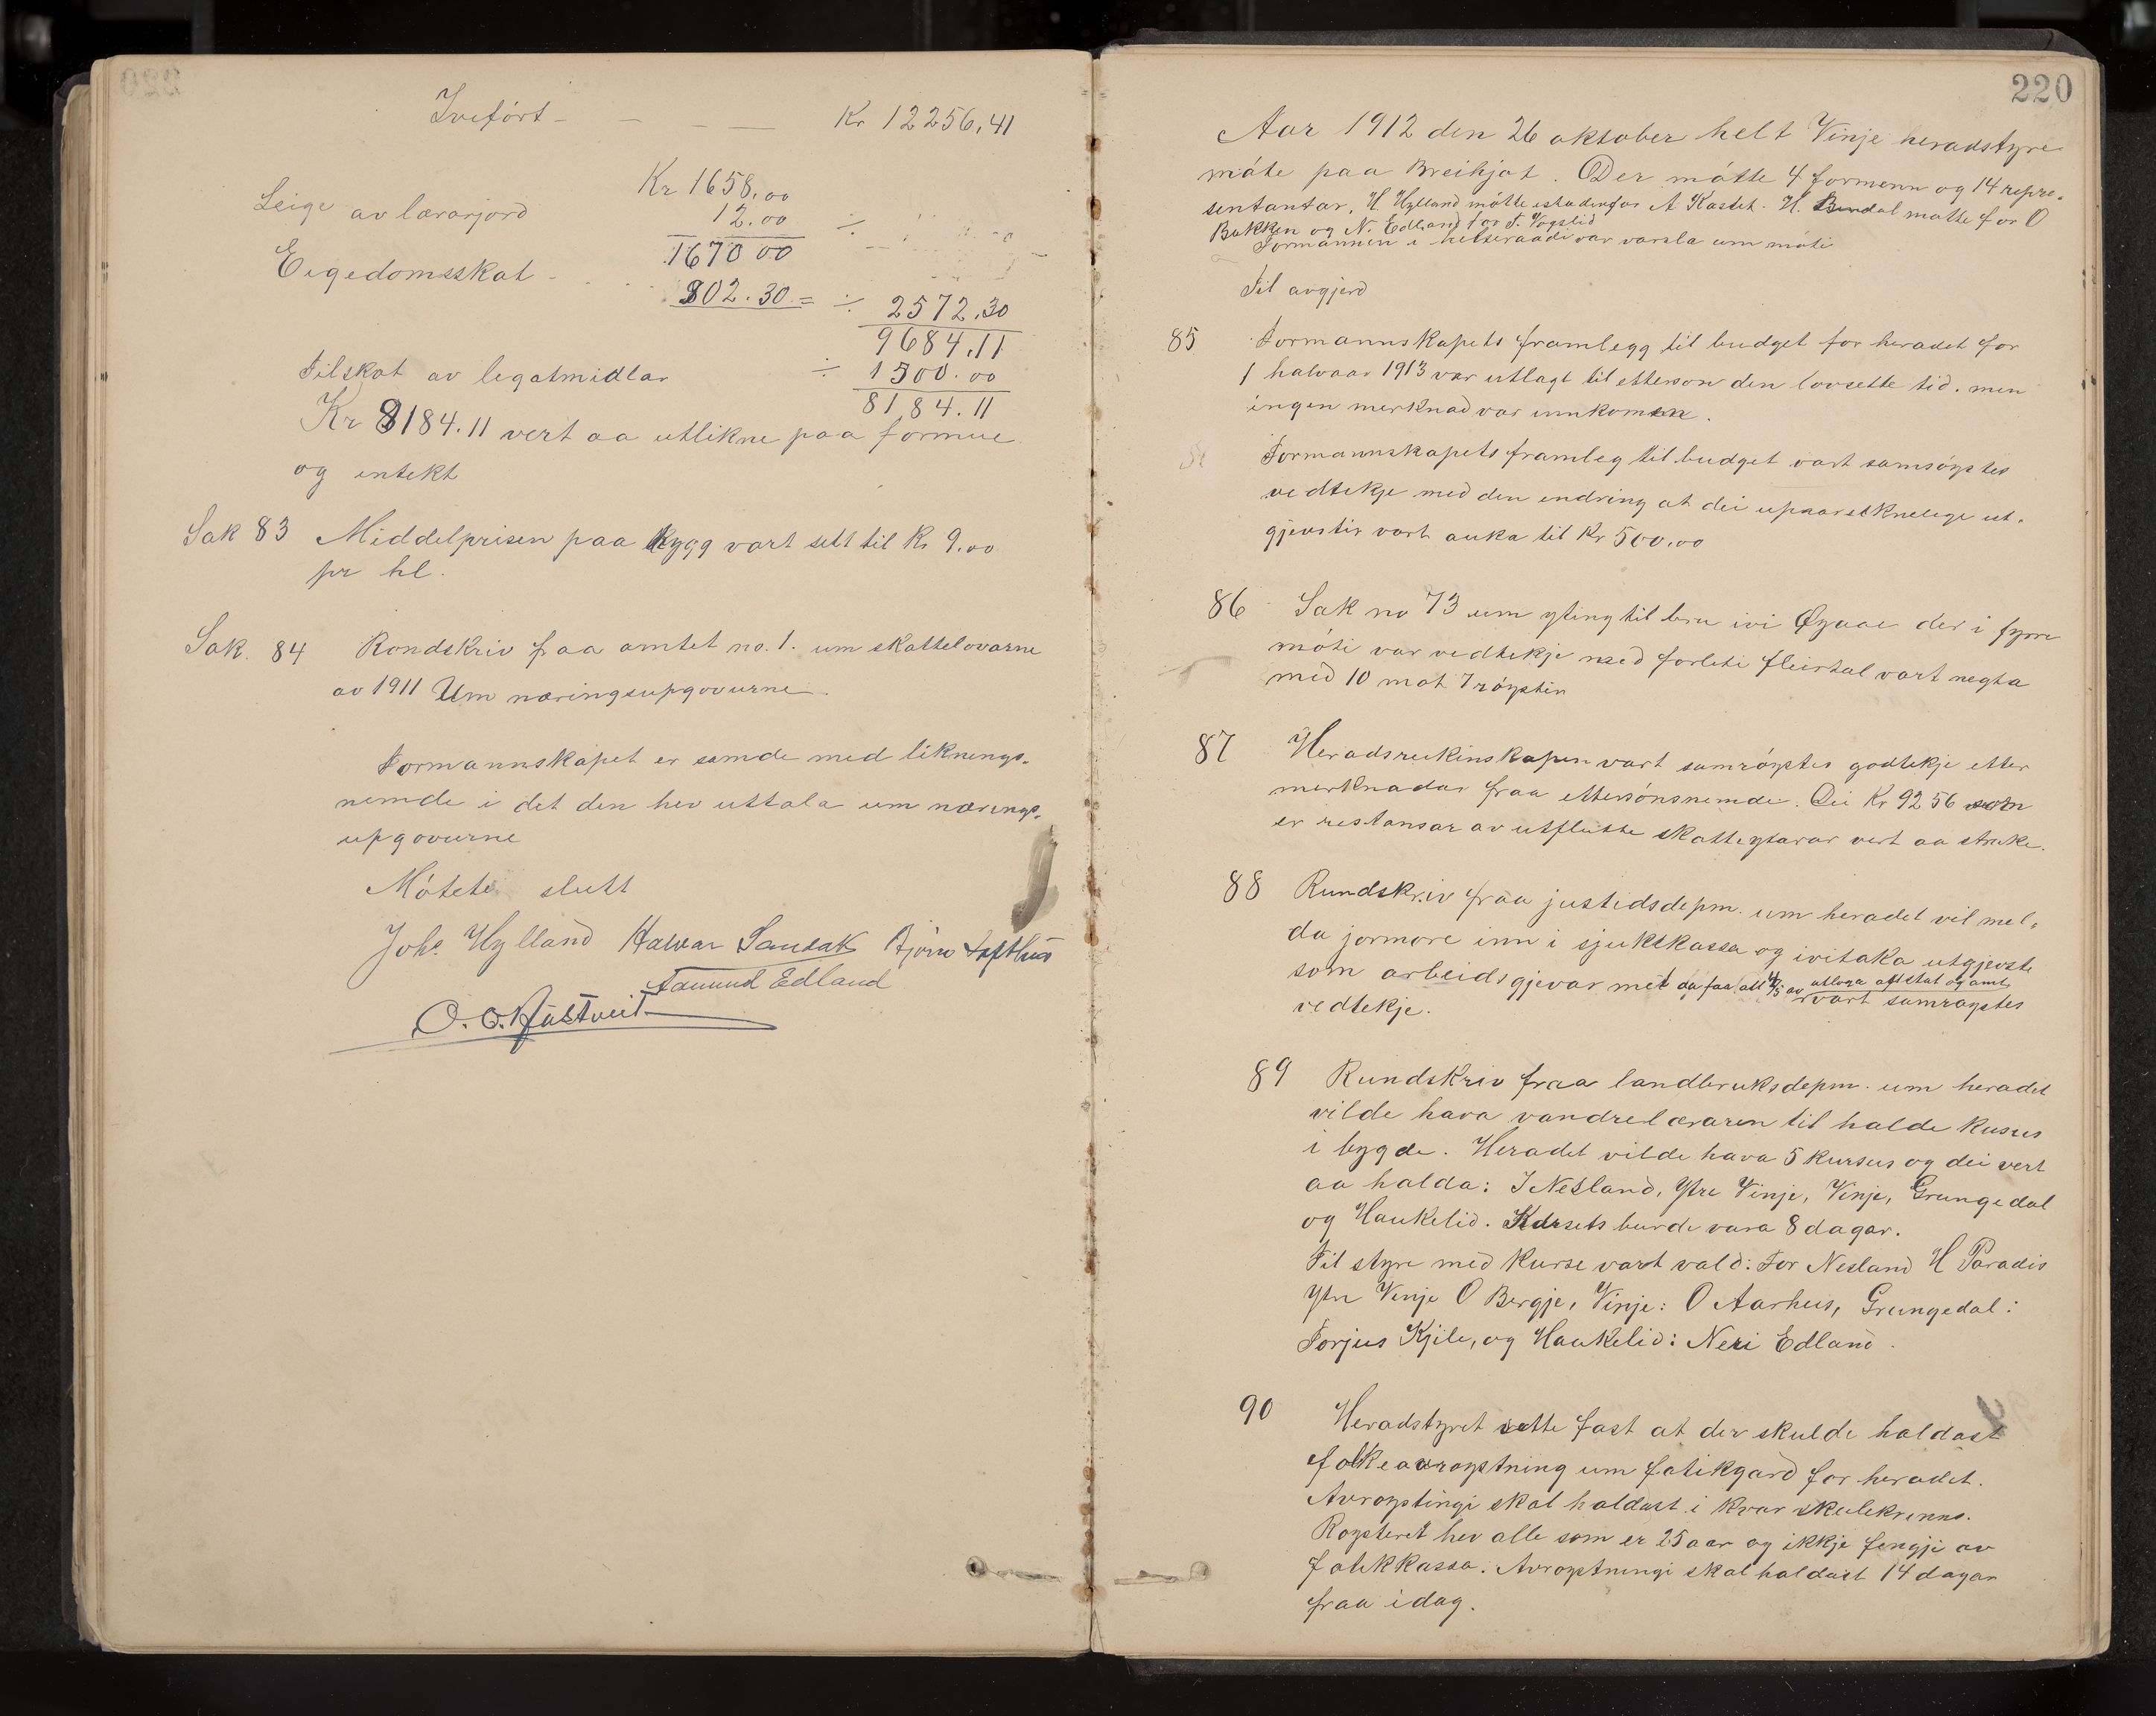 Iveført - - - - Kr 12256,41
Kr 1658,00
Leige av lærarjord 12.00 ÷
1670 00
Eigedomsskat - 902.30 = ÷ 2572,30
9684,11
Tilskot av legatmidlar ÷ 1500.00
8184.11
Kr 8184.11 vert aa utlikne paa formue
og intekt
Sak 83 Middelprisen paa bygg vart sett til Kr 9.00
pr hl.
Sak. 84 Rondskriv fraa amtet no. 1. um skattelovarne
av 1911 Um næringsupgovurne.
Formannskapet er samde med liknings-
nemde i det den hev uttala um nærings-
upgovurne
Møtete slutt
Johs. Hylland Halvar Sandak Bjørn Lofthus
Aamund Edland
O. O. Rustveit
220
Aar 1912 den 26 oktober helt Vinje heradstyre
møte paa Breihjot. Der møtte 4 formenn og 14 repre-
sentantar, H. Hylland møtte istadenfor A Kostet. H. Bendal møtte for O
Bakken og N. Edland for T. Vogslid
Formannen i helseraadi var varsla um møti
Til avgjerd
85 Formannskapets framlegg til budget for heradet for
1 halvaar 1913 var utlagt til ettersyn den lovsette tid. men
ingen merknad var innkomen.
Formannskapets framleg til budget vart samrøystes
vedtekje med den endring at dei upaareknelege ut-
gjevstir vart auka til Kr 500,00
86 Sak no 73 um yting til bru ivi Øyaae der i fyrre
møti var vedtekje med forleti fleirtal vart negta
med 10 mot 7 røystir
87 Heradsreekinskapen vart samrøystes godtekje etter
merknadar fraa ettersynsnemde. Dei Kr 92 56 som
er restansar av utflutte skatteytarar vert aa stryke.
88 Rundskriv fraa justidsdepm. um heradet vil mel-
da jormore inn i sjukekassa og ivitaka utgjevste
som arbeidsgjevar met da faa att 4/5 av utlogа att stat og amt
vart samrøystes
vedtekje.
89 Rundskriv fraa landbruksdepm. um heradet
vilde hava vandrelæraren til halde kusus
i bygde. Heradet vilde hava 5 kursus og dei vert
aa halda: I Nesland, Ytre Vinje, Vinje, Grungedal
og Haukelid. Kursets burde vara 8 dagar.
Til styre med kurse vart vald: For Nesland H Paradis
Ytre Vinje O Bergje, Vinje: O Aarhus, Grungedal:
Torjus Kjile, og Haukelid: Neri Edland.
90 Heradstyret sette fast at der skulde haldast
folkeavrøystning um fatikgard for heradet.
Avrøystingi skal haldast i kvar skulekrinns.
Røysterett hev alle som er 25 aar og ikkje fengje av
fatikkassa. Avrøystningi skal haldast 14 dagar
fraa idag.